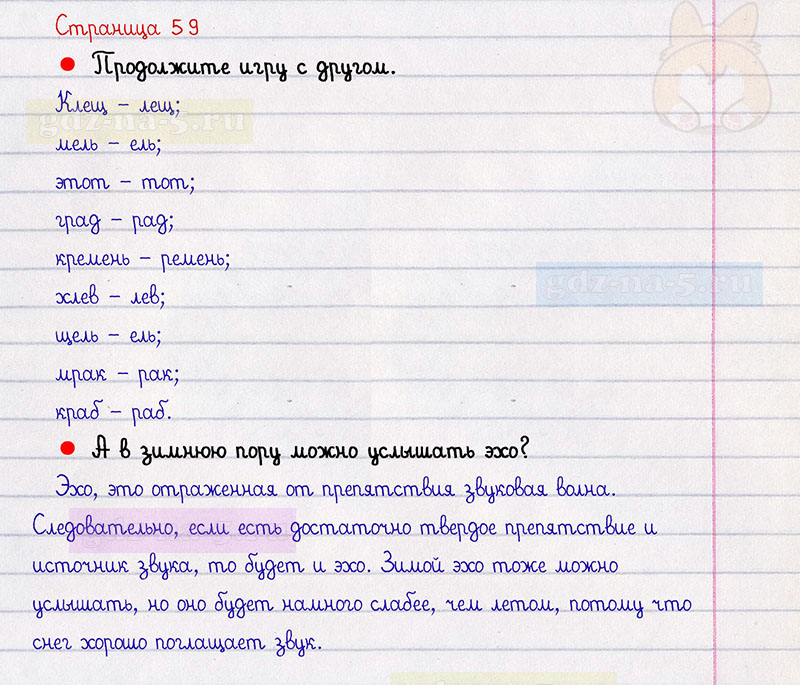 Страница 59
Продолжите игру с другом.
Клещ – лещ;
gdz-na-5.ru
мель – ель;
этот – тот;
град – рад;
кремень – ремень;
gdz-na-5.ru
хлев – лев;
щель – ель;
мрак – рак;
краб – раб.
А в зимнюю пору можно услышать эхо?
Эхо, это отраженная от препятствия звуковая волна.
Следовательно, если есть достаточно твердое препятствие и
источник звука, то будет и эхо. Зимой эхо тоже можно
услышать, но оно будет намного слабее, чем летом, потому что
снег хорошо поглощает звук.